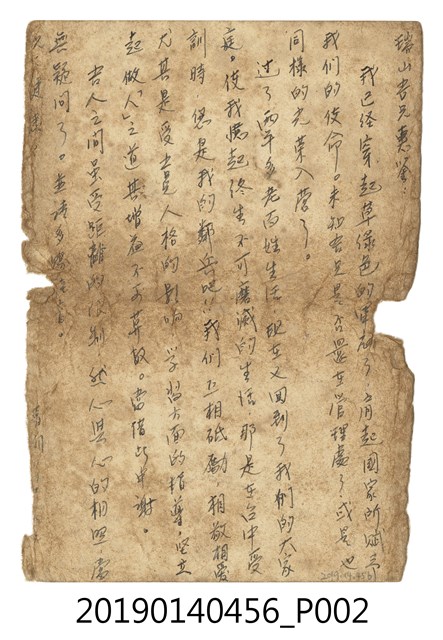 瑞山吾兄惠鑒
我已經穿起草綠色的軍服了，肩起國家所賦予
我们的使命。未知吾兄是否還在管理處？或是也
同樣的光榮入營了。
过了两年多老百姓生活，现在又回到了我们的大家
庭。使我憶起終生不可磨滅的生活，那是在台中受
訓時，您是我的鄰兵吧！我们互相砥勵，相敬相愛
尤其是受吾兄人格的影响，学習方面的指導，坚立
起做「人」之道其增益不可算数。当借此申謝。
吾人之間虽受距離的限制，然心與心的相照處
無疑问了。並請多
20190140456_P002